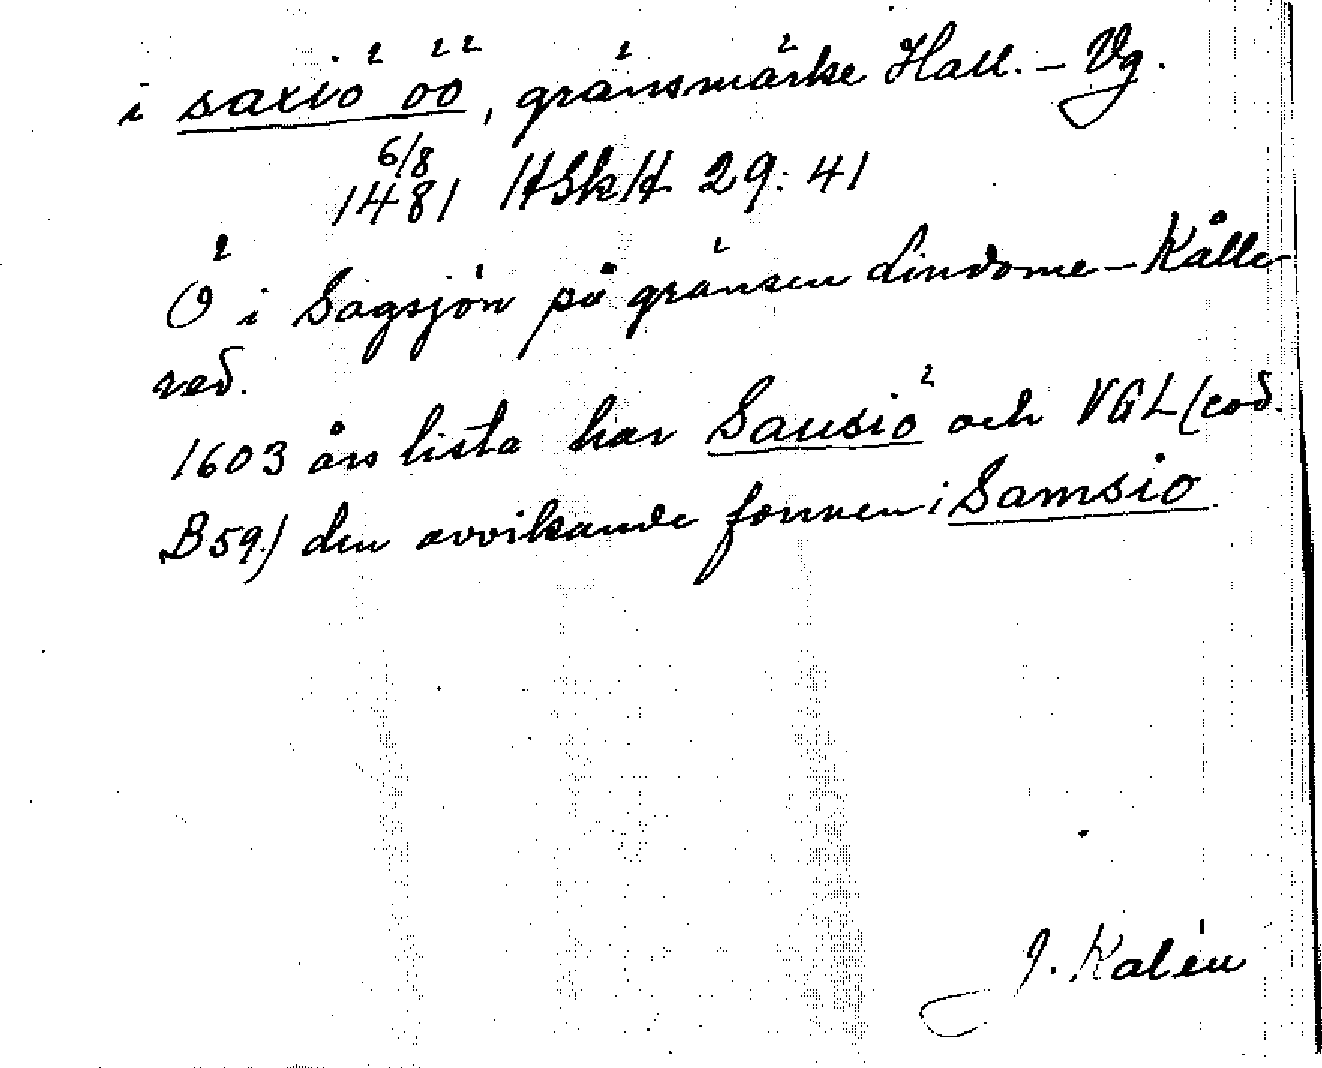 i saxiö öö, gränsmärke Hall. - Vg.
6/8
1481 HSkH 29:41
Ö i Sagsjön på gränsen Lindome - Kålle-
red.
1603 års lista har Sausiö och VGL (cod.
B59.) den avvikande formen i Samsio
J. Kalén